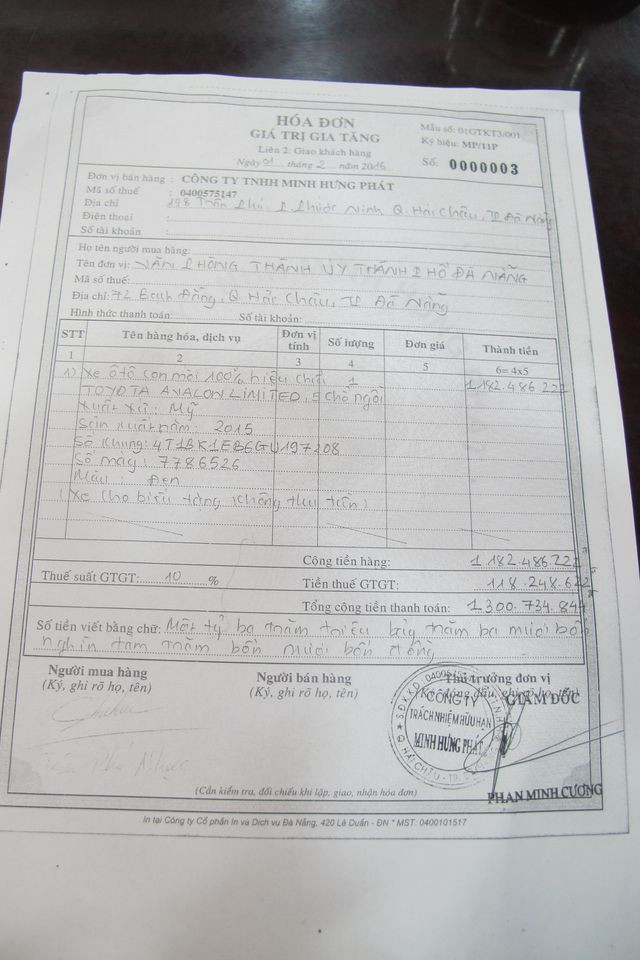 HÓA ĐƠN
GIÁ TRỊ GIA TĂNG
Liên 2: Giao khách hàng
Ngày 01 tháng 2 năm 2016
Mẫu số: 01GTKT3/001
Ký hiệu: MP/11P
Số: 0000003
Đơn vị bán hàng : CÔNG TY TNHH MINH HƯNG PHÁT
Mã số thuế : 0400575147
Địa chỉ 198 Trần Phú, P. Phước Ninh Q. Hải Châu, TP Đà Nẵng
Điện thoại :
Số tài khoản :
Họ tên người mua hàng:
Tên đơn vị: VĂN PHÒNG THÀNH ỦY THÀNH PHỐ ĐÀ NẴNG
Mã số thuế:
Địa chỉ: 72 Bạch Đằng, Q. Hải Châu, TP Đà Nẵng
Hình thức thanh toán: Số tài khoản:
STT Tên hàng hóa, dịch vụ Đơn vị tính Số lượng Đơn giá Thành tiền
1 2 3 4 5 6= 4x5
1) Xe ôtô con mới 100% hiệu 1 1.182.486.222
TOYOTA AVALON LIMITED, 5 chỗ ngồi
Xuất xứ: Mỹ
Sản xuất năm: 2015
Số khung: 4T1BK1EB6GU197208
Số máy: 7786526
Màu: Đen
(Xe cho biếu tặng không thu tiền)
Cộng tiền hàng: 1.182.486.222
Thuế suất GTGT: 10 % Tiền thuế GTGT: 118.248.622
Tổng cộng tiền thanh toán: 1.300.734.844
Số tiền viết bằng chữ: Một tỷ ba trăm triệu bảy trăm ba mươi bốn
nghìn tám trăm bốn mươi bốn đồng
Người mua hàng Người bán hàng Thủ trưởng đơn vị
(Ký, ghi rõ họ, tên) (Ký, ghi rõ họ, tên) (Ký, đóng dấu, ghi rõ họ, tên)
GIÁM ĐỐC
CÔNG TY
TRÁCH NHIỆM HỮU HẠN
MINH HƯNG PHÁT
PHAN MINH CƯƠNG
(Cần kiểm tra, đối chiếu khi lập, giao, nhận hóa đơn)
In tại Công ty Cổ phần In và Dịch vụ Đà Nẵng, 420 Lê Duẩn - ĐN * MST: 0400101517